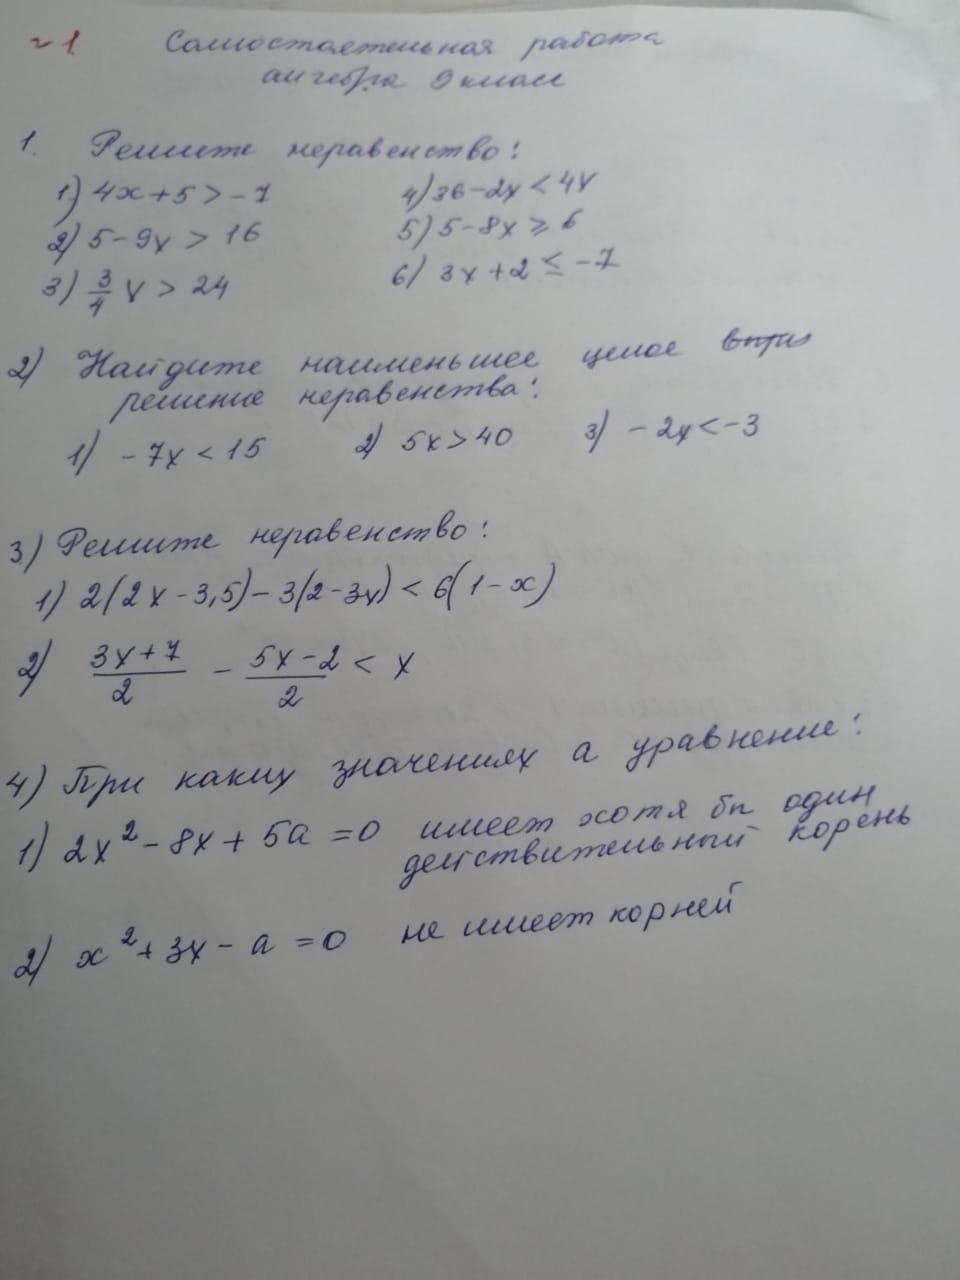 ~1 Самостоятельная работа
алгебра 9 класс
1. Решите неравенство:
1) 4x+5>-7 4) 36-2x<4x
2) 5-9x > 16 5) 5-8x ≥ 6
3) 3/4 x > 24 6) 3x+2 ≤ -7
2) Найдите наименьшее целое
решение неравенства:
1) -7x<15 2) 5x>40 3) -2x<-3
3) Решите неравенство:
1) 2(2x-3,5)-3(2-3x)<6(1-x)
2) (3x+7)/2 - (5x-2)/2 < x
4) При каких значениях a уравнение:
1) 2x²-8x+5a=0 имеет хотя бы один
действительный корень
2) x²+3x-a=0 не имеет корней